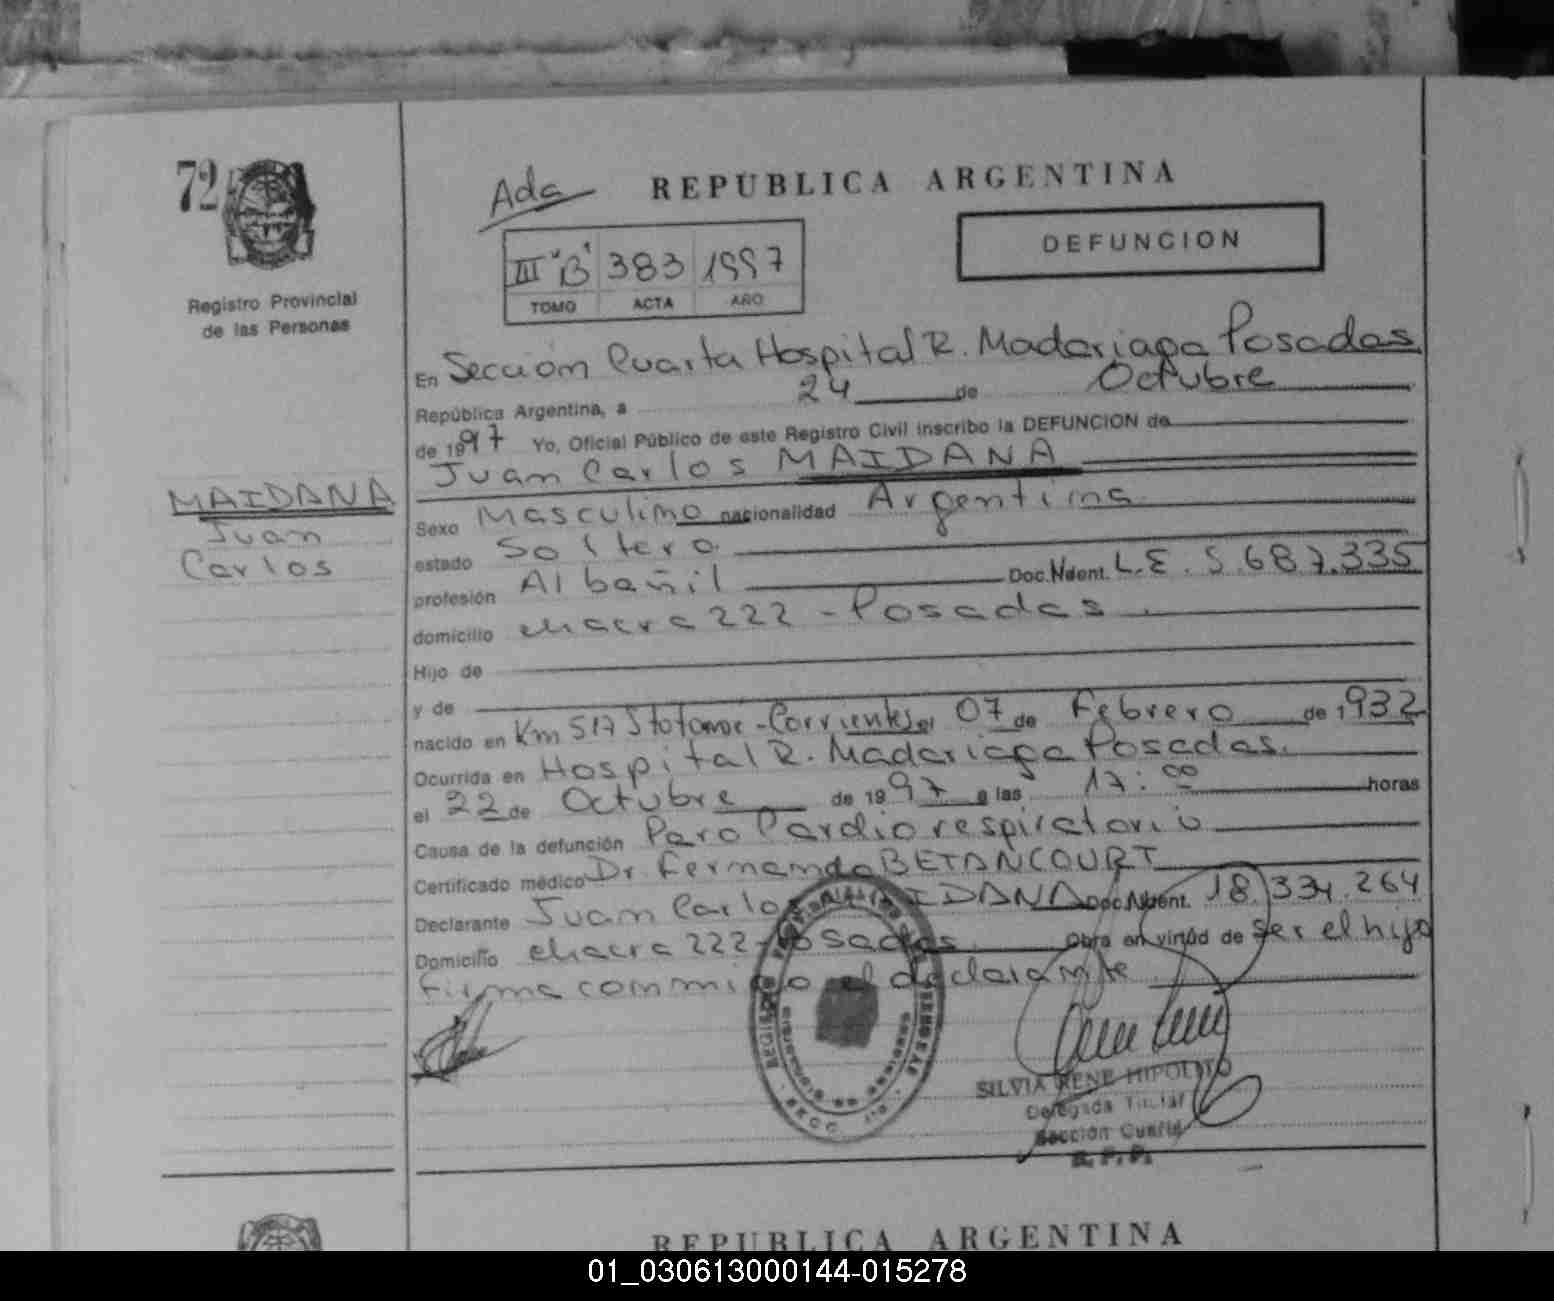 72
Ada
REPUBLICA ARGENTINA
DEFUNCION
III "B" 383 1997
TOMO ACTA AÑO
Registro Provincial
de las Personas
En Sección Cuarta Hospital R. Madariaga Posadas
República Argentina, a 24 de Octubre
de 1997 Yo, Oficial Público de este Registro Civil inscribo la DEFUNCION de
Juan Carlos MAIDANA
MAIDANA
Juan
Carlos
Sexo Masculino nacionalidad Argentina
estado Soltero
profesión Albañil Doc. Ident. L.E. 5.687.335
domicilio chacra 222 - Posadas
Hijo de
y de
nacido en Km 517 - Corrientes el 07 de Febrero de 1932
Ocurrida en Hospital R. Madariaga Posadas.
el 22 de Octubre de 1997 a las 17:00 horas
Causa de la defunción Paro Cardiorespiratorio
Certificado médico Dr. Fernando BETANCOURT
Declarante Juan Carlos MAIDANA Doc. Ident. 18.334.264
Domicilio chacra 222 - Posadas. Obra en virtud de ser el hijo
firma conmigo el declarante
SILVIA RENE HIPOLITO
Delegada Titular
Sección Cuarta
R. P. P.
REPUBLICA ARGENTINA
01_030613000144-015278